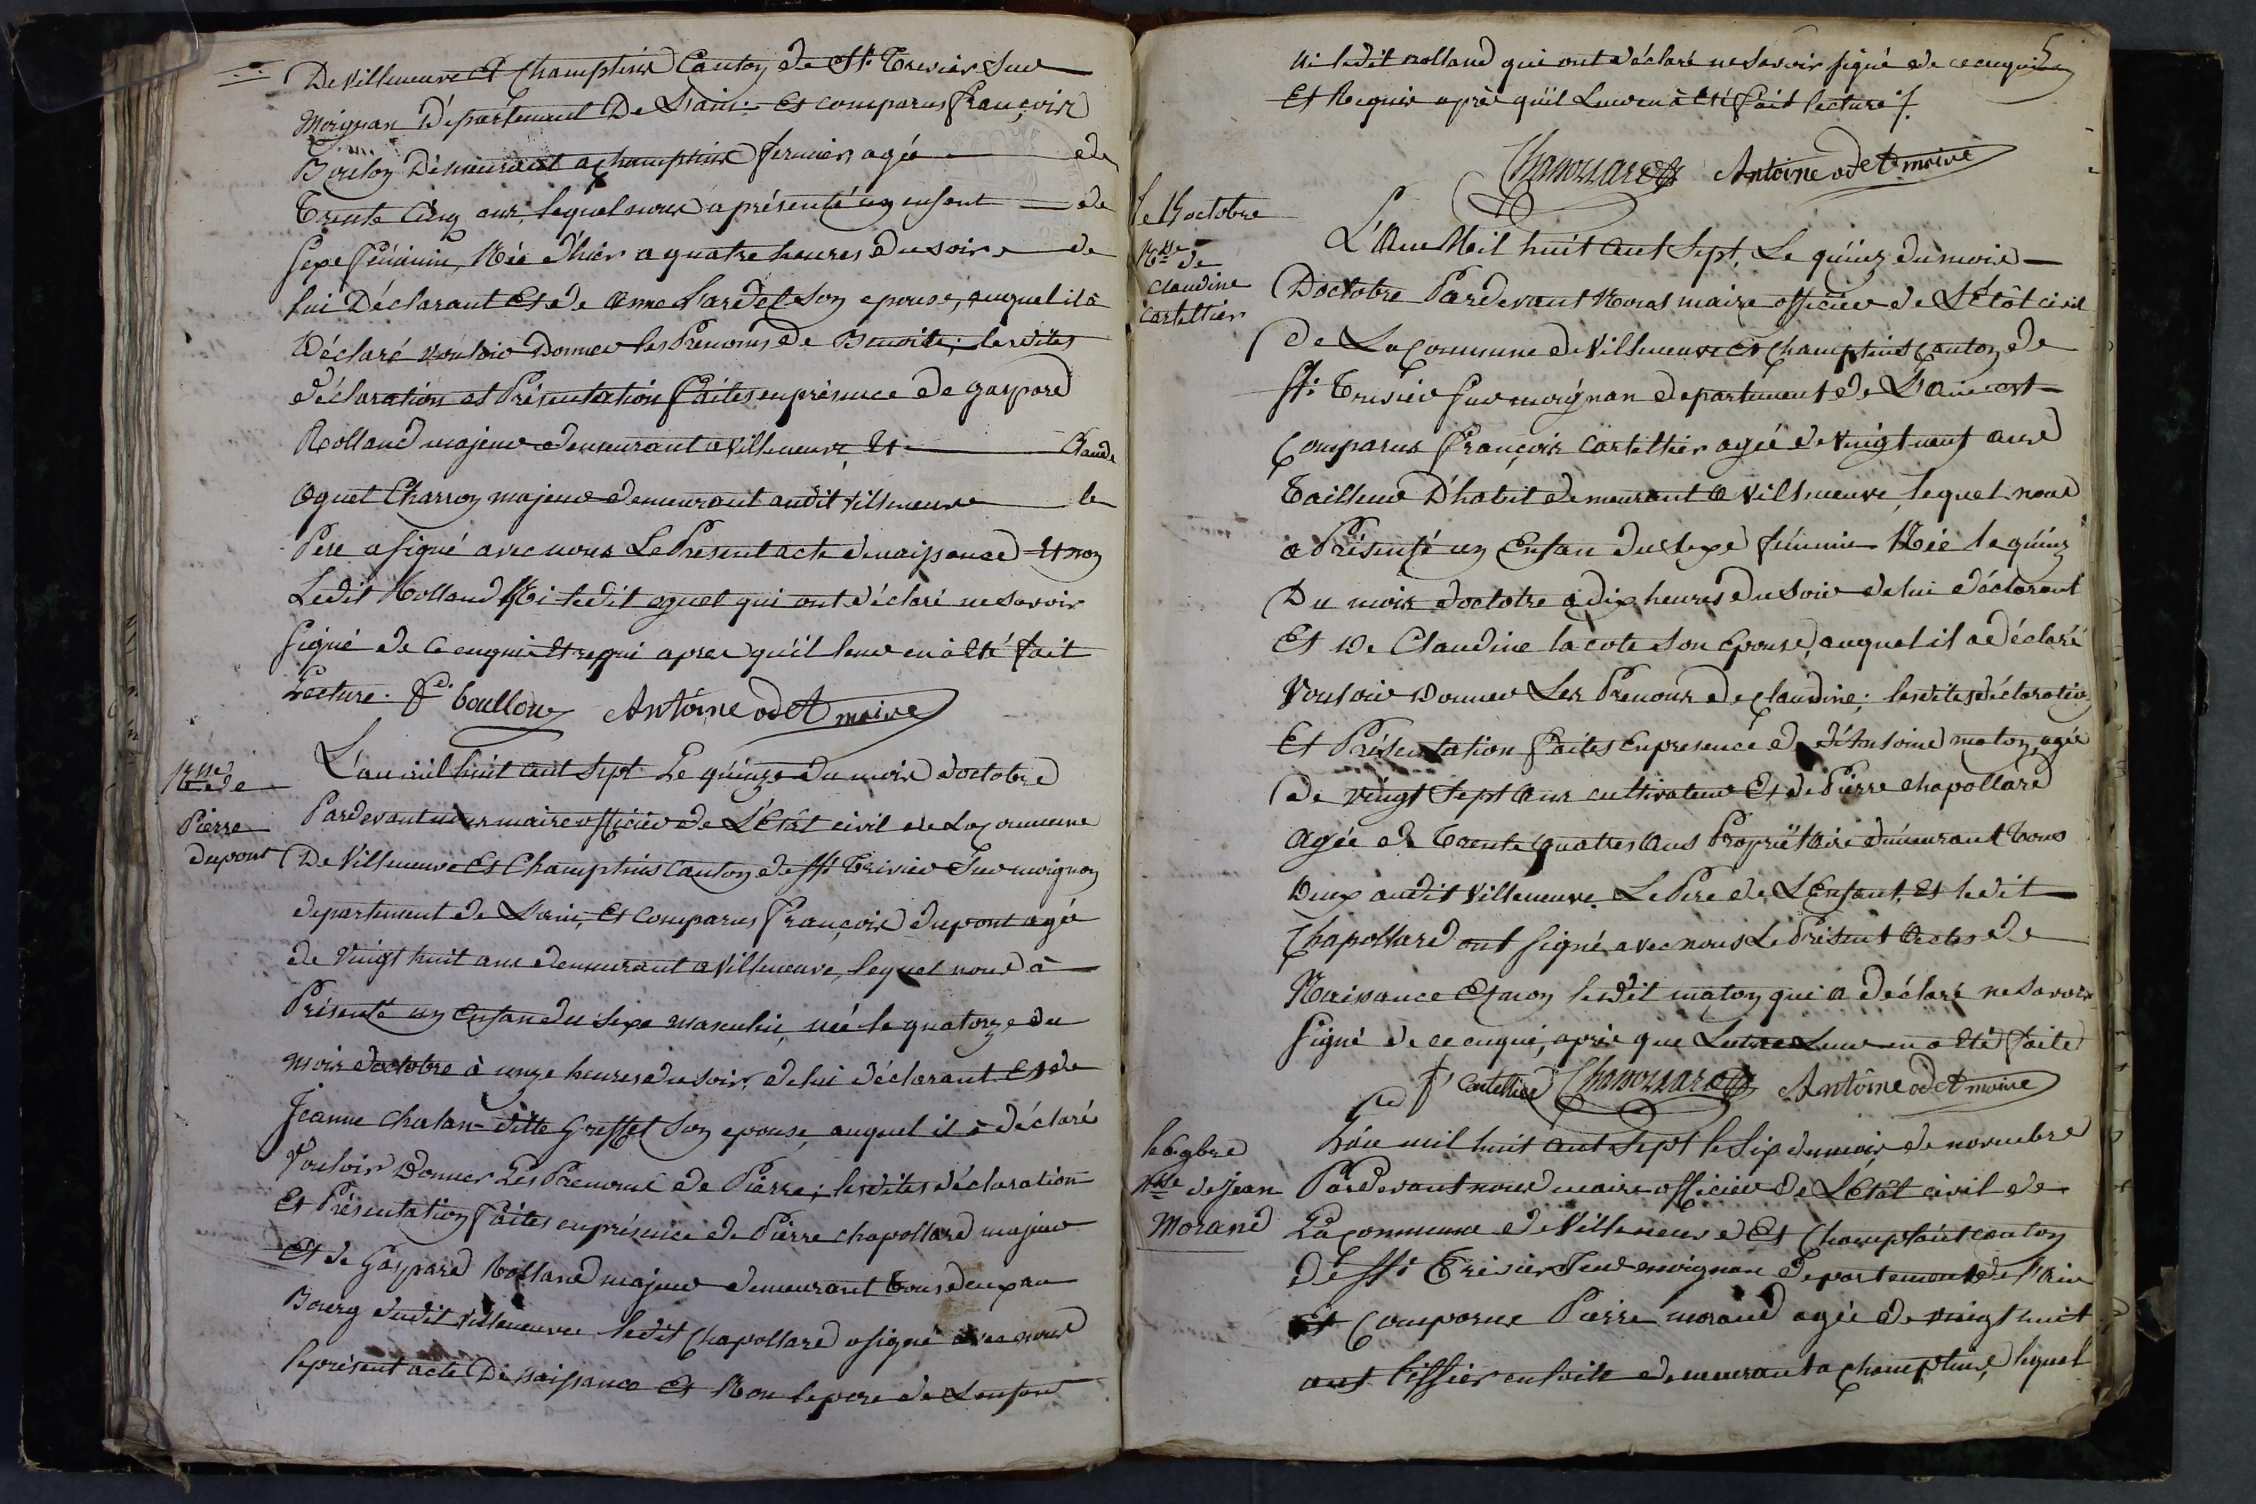 De villeneuve Et Champtins Canton de St. Trivier Sur
Moignan Département De L'ain. Et comparus françois
Boulon Demeurant a Champtins fermier agée de
Trente Cinq ans, lequel nous a présenté un enfant de
sexe féminin, Née d'hier a quatre heures du soir, de
lui Déclarant Et de anne Son epouse, auquel il à
Déclaré vouloir Donner les Prenoms de Benoite; les dites
déclaration et Présentation faites en présence de gaspard
Rolland majeur demeurant a villeneuve, Et Claude
oguet Charron majeur demeurant audit villeneuve le
Pere a signé avec nous Le Présent acte de naissance Et non
Ledit Rolland Ni ledit oguet qui ont déclaré ne savoir
signé de ce enquis Et requi apres qu'il leur en à été fait
Lecture. fs. boullon Antoine odet maire
Nsse de
Pierre
dupont
L'an mil huit cent sept Le quinze du mois doctobre
Pardevant nous maire officier de L'Etât civil de La commune
De Villeneuve Et Champtins Canton de St Trivier Sur moignan
departement de Lain, Et comparus françois dupont agée
de Vingt huit ans demeurant a Villeneuve, lequel nous à
Présenté un Enfan du sexe masculin, né le quatorze du
mois doctobre à onze heures du soir, de lui déclarant Et de
Jeanne Chatan ditte Greffet Son epouse, auquel il à déclaré
Vouloir Donner Les Prenoms de Pierre; lesdites déclaration
Et Présentation faites en présence de Pierre chapollard majeur
Et de Gaspard Rolland majeur demeurant tous deux au
Bourg dudit Villeneuve ledit Chapollard a signé avec nous
le présent acte De naissance Et Non le pere de Lenfant
5
ni ledit rolland qui ont déclaré ne savoir signé de ce enquis
Et Requis après qu'il Leur en à été fait lecture /.
Antoine odet maire
le 15 octobre
Nsse de
claudine
cartellier
L'An Mil huit cent Sept, Le quinz du mois
Doctobre Pardevant Nous maire officier de L'Etât civil
de La Commune de Villeneuve Et Champtins Canton de
St. Trivier sur moignan departement de L'Ain est
Comparus François cartellier agée de vingt neuf ans
Tailleur D'habit demeurant a Villeneuve, lequel nous
a Présenté un Enfan du sexe féminin Née le quinz
Du mois doctobre à dix heures du Soir de lui déclarant
Et De Claudine lacote son Epouse, auquel il a déclaré
Vouloir Donner Les Prenoms de Claudine; lesdites déclaration
Et Présentation faites En presence de d'Antoine maton, agée
de vingt Sept Ans cultivateur Et de Pierre chapollard
agée de Trente quatres Ans Propriëtaire demeurant tous
Deux audit Villeneuve Le Pere de L'Enfant, Et ledit
Chapollard ont signé avec nous Le Présent Actes de
Naissance Et non ledit maton qui a déclaré ne savoir
signé de ce enqui, après que Lecture Leur en a été faite
f cartellier Antoine odet maire
le 6 9bre
Nsse de Jean
Morand
L'an mil huit cent Sept le Six du mois de novembre
Pardevant nous maire officier de L'Etat civil de
La commune de Villeneuve Et Champtins canton
de St. Trivier Sur moignan departement de l'Ain
Et Comparus Pierre morand agée de vingt huit
ans tissier en toile demeurant a Champtins, lequel